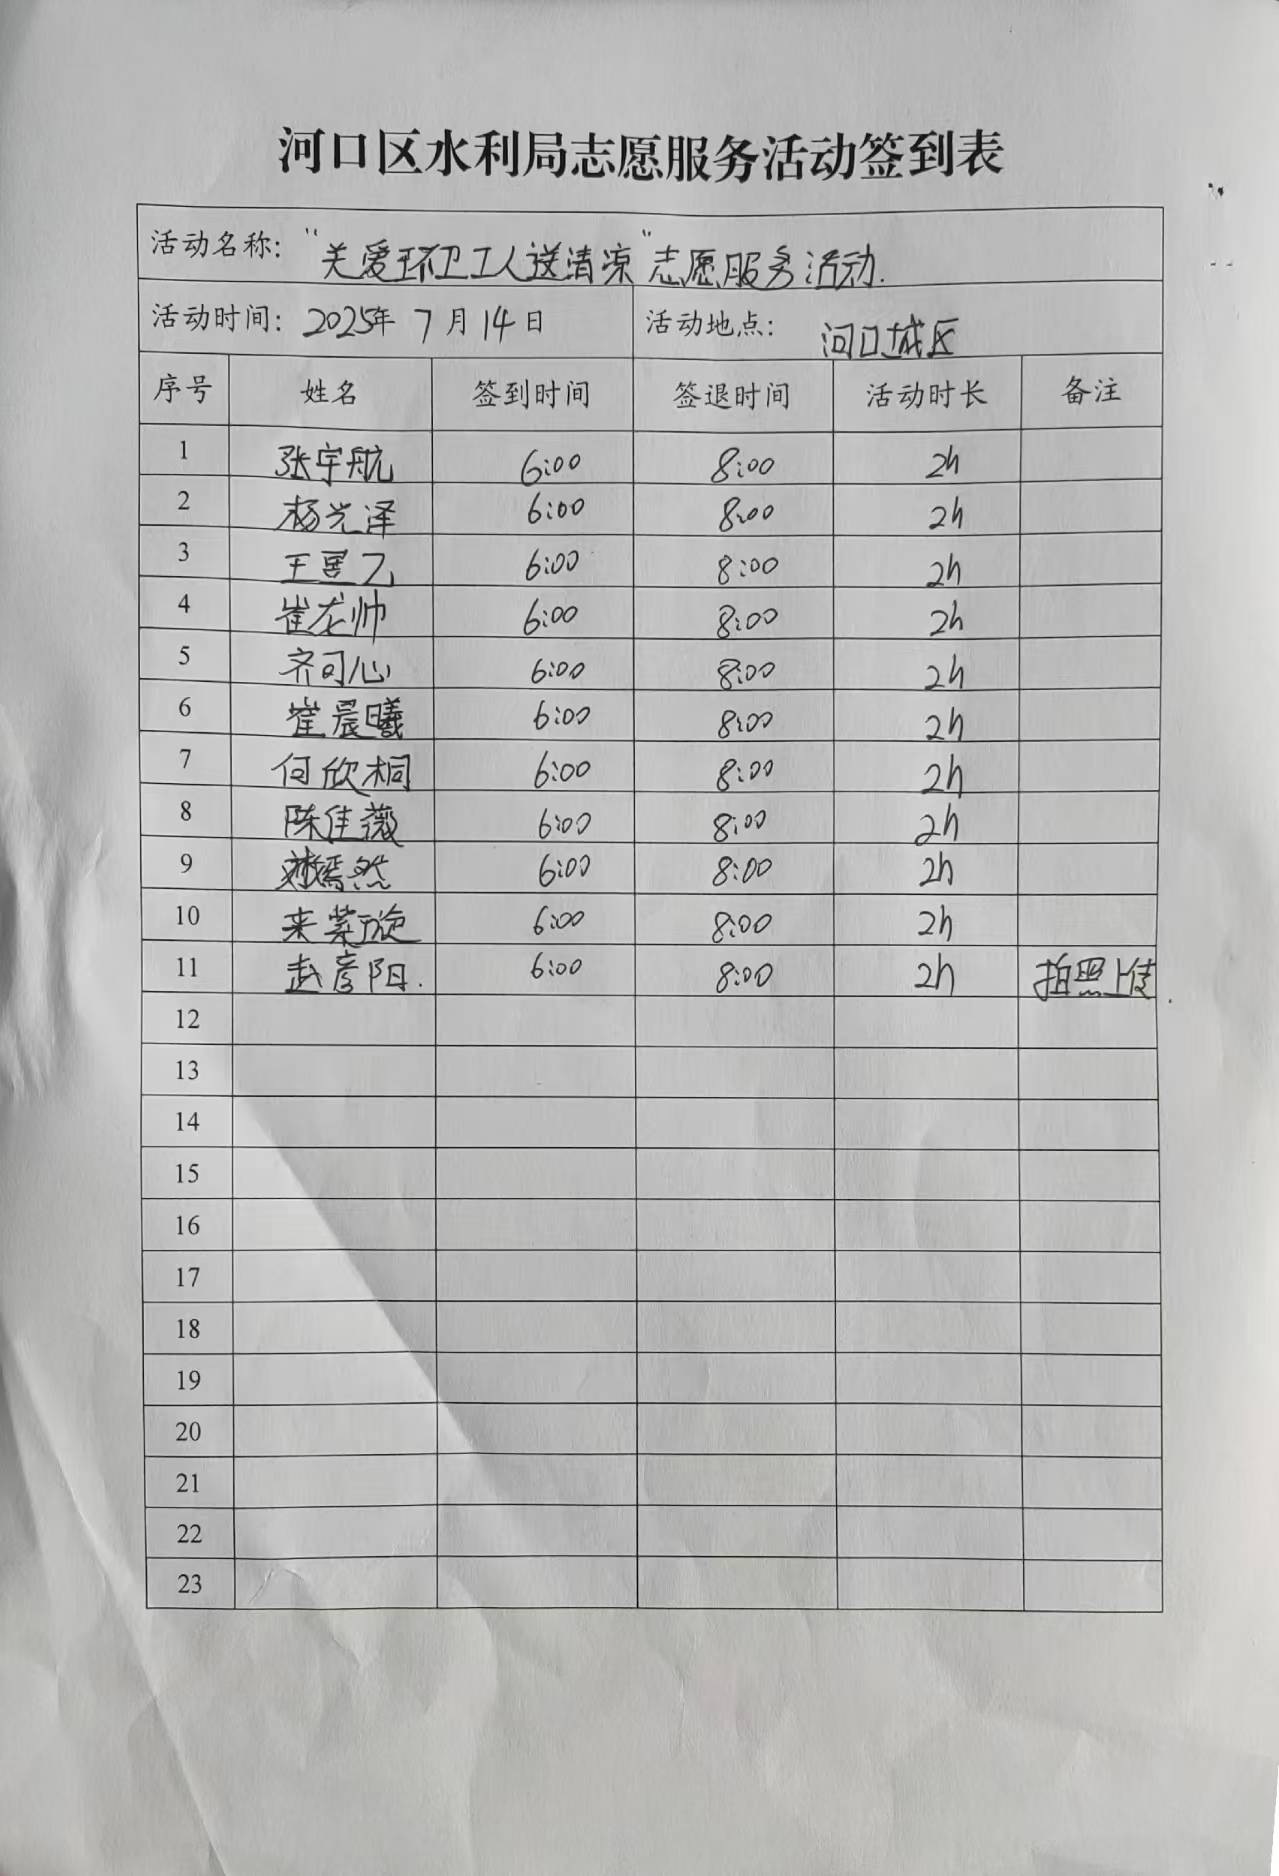 河口区水利局志愿服务活动签到表
活动名称: "关爱环卫工人送清凉"志愿服务活动.
活动时间: 2025年 7月14日 活动地点: 河口城区
序号 姓名 签到时间 签退时间 活动时长 备注
1 张宇航 6:00 8:00 2h
2 杨光泽 6:00 8:00 2h
3 6:00 8:00 2h
4 崔龙帅 6:00 8:00 2h
5 齐可心 6:00 8:00 2h
6 崔晨曦 6:00 8:00 2h
7 何欣桐 6:00 8:00 2h
8 陈佳薇 6:00 8:00 2h
9 刘嫣然 6:00 8:00 2h
10 6:00 8:00 2h
11 赵彦阳. 6:00 8:00 2h 拍照上传.
12
13
14
15
16
17
18
19
20
21
22
23